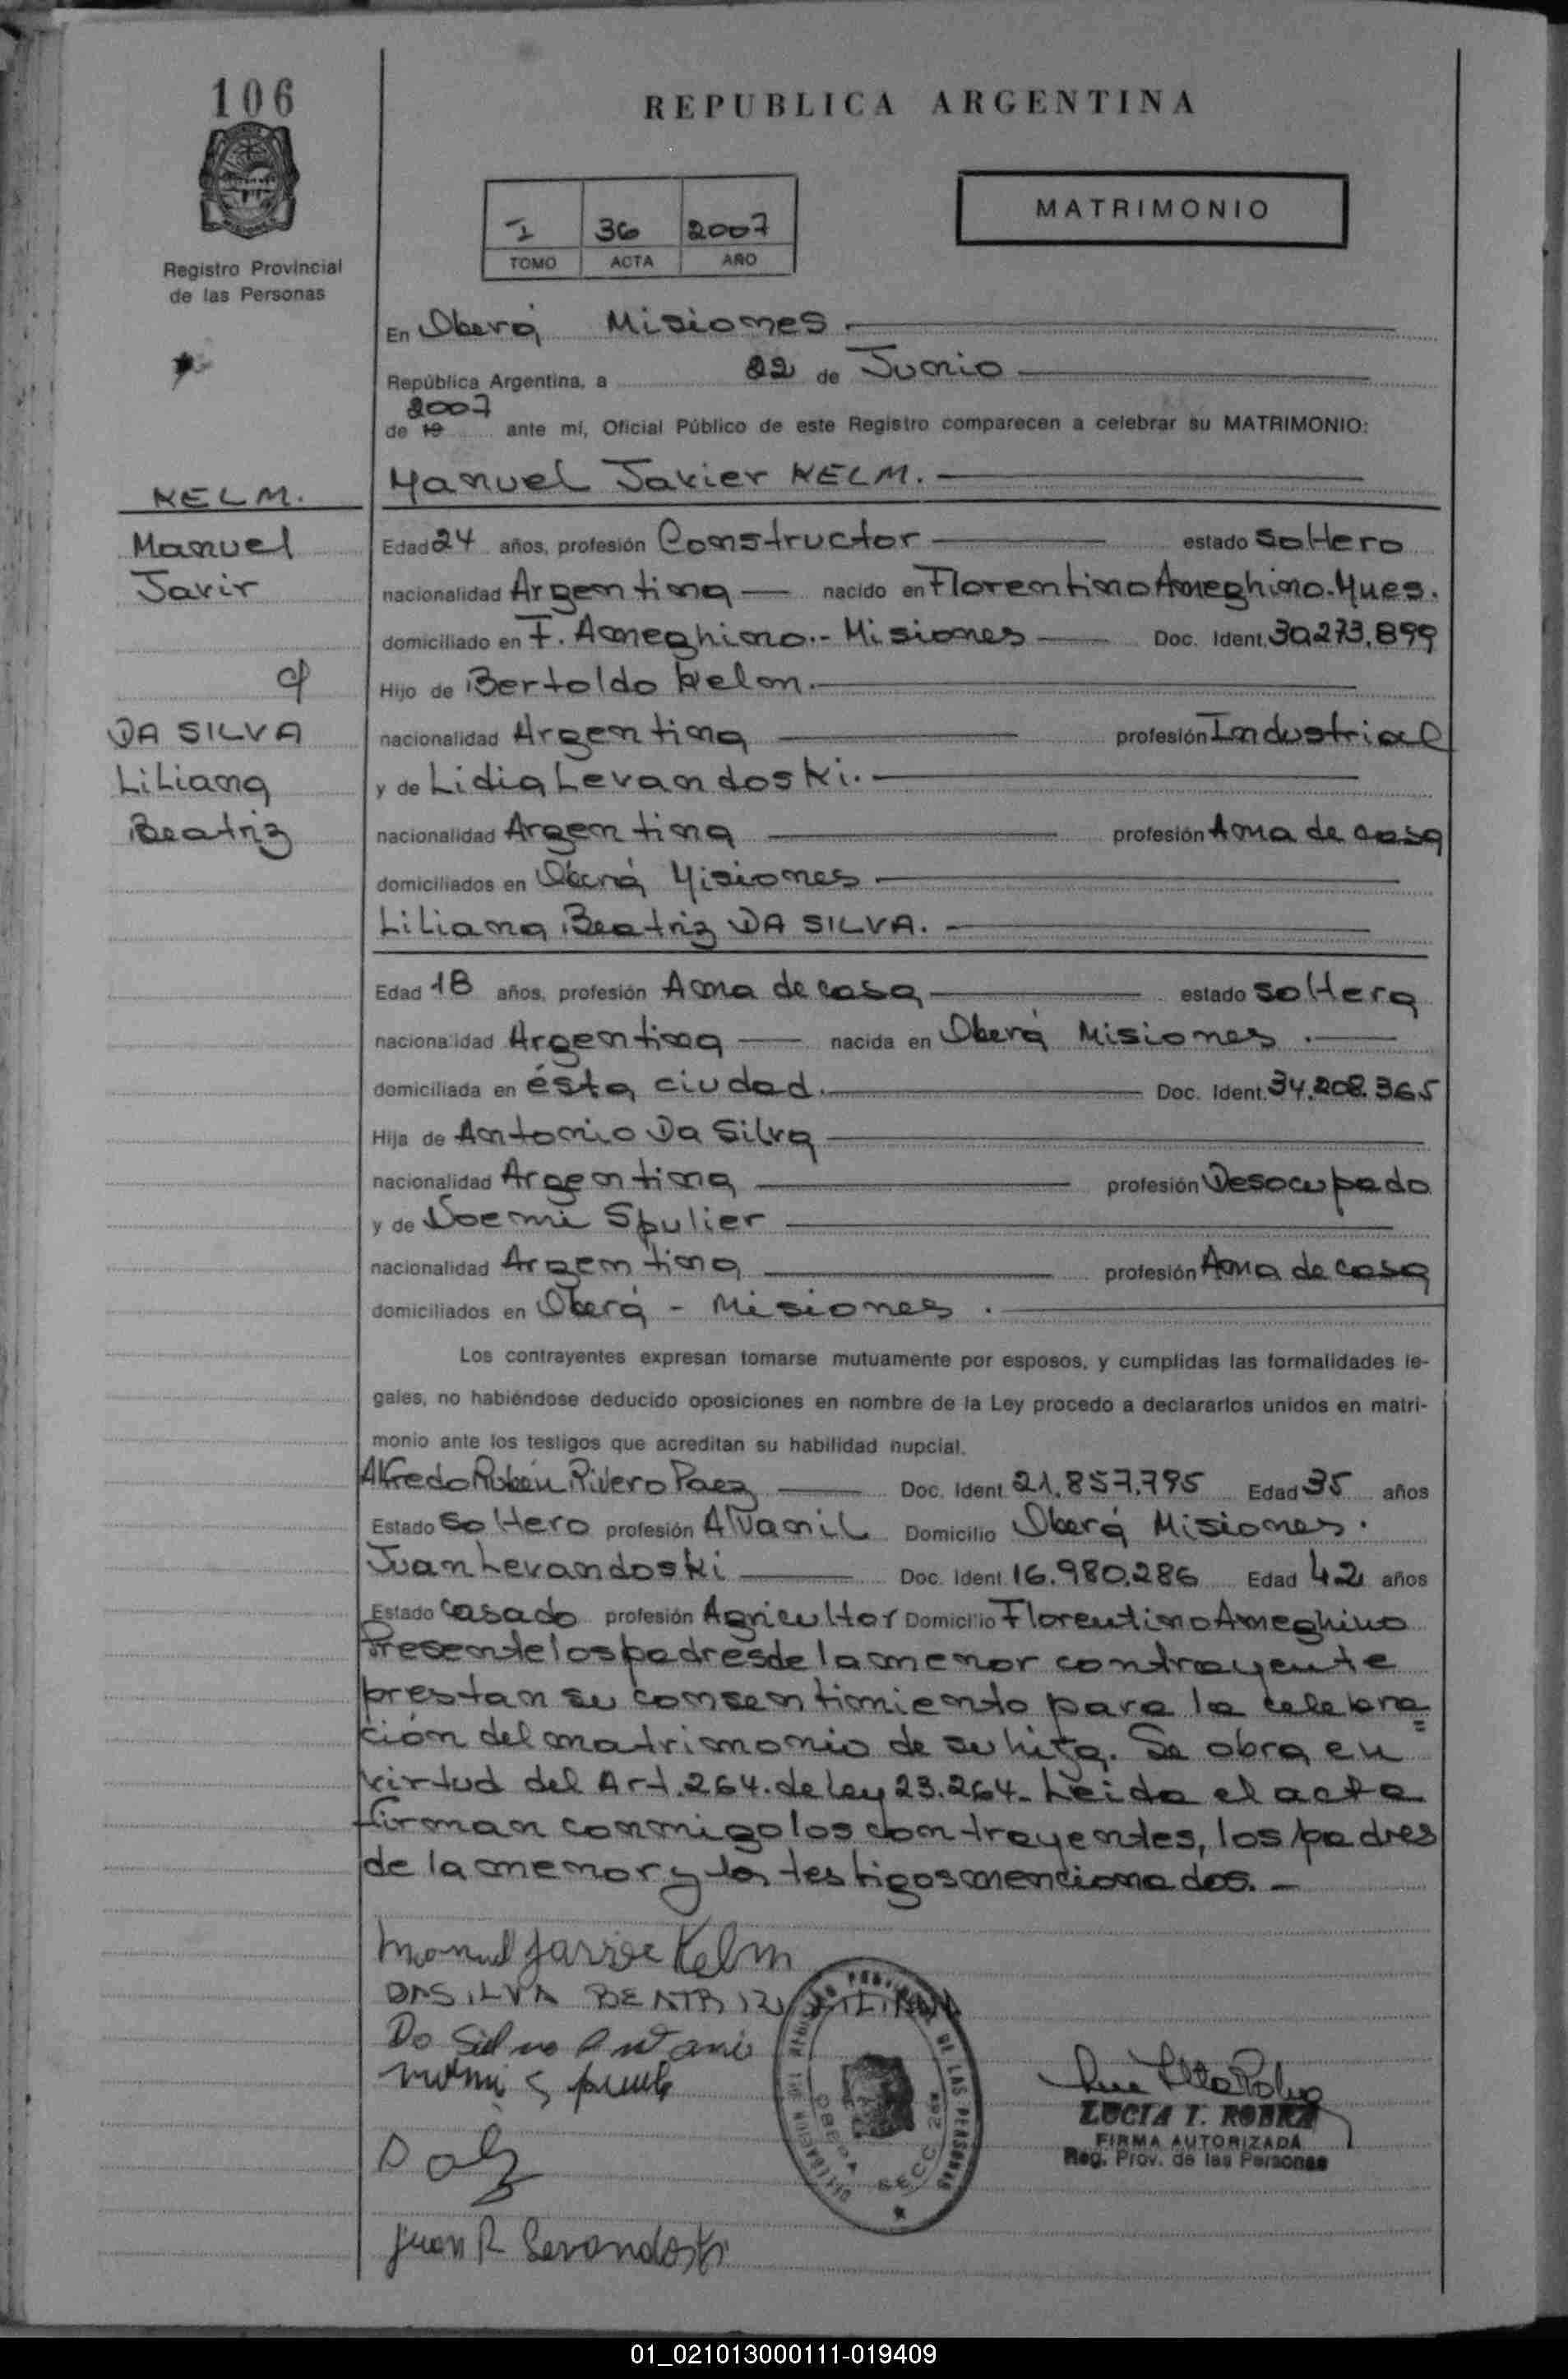 106
REPUBLICA ARGENTINA
I 36 2007
TOMO ACTA AÑO
MATRIMONIO
Registro Provincial
de las Personas
En Oberá Misiones
República Argentina, a 22 de Junio
2007
de 19 ante mí, Oficial Público de este Registro comparecen a celebrar su MATRIMONIO:
Manuel Javier KELM.
KELM.
Manuel
Javir
c/
DA SILVA
Liliana
Beatriz
Edad 24 años, profesión Constructor estado soltero
nacionalidad Argentina nacido en Florentino Ameghino. Mnes.
domiciliado en F. Ameghino.- Misiones Doc. Ident. 30.273.899
Hijo de Bertoldo Kelm.
nacionalidad Argentina profesión Industrial
y de Lidia Levandoski.
nacionalidad Argentina profesión Ama de casa
domiciliados en Oberá Misiones
Liliana Beatriz DA SILVA.
Edad 18 años, profesión Ama de casa estado soltera
nacionalidad Argentina nacida en Oberá Misiones.
domiciliada en ésta ciudad. Doc. Ident. 34.208.365
Hija de Antonio Da Silva
nacionalidad Argentina profesión Desocupado
y de Noemi Spulier
nacionalidad Argentina profesión Ama de casa
domiciliados en Oberá - Misiones.
Los contrayentes expresan tomarse mutuamente por esposos, y cumplidas las formalidades le-
gales, no habiéndose deducido oposiciones en nombre de la Ley procedo a declararlos unidos en matri-
monio ante los testigos que acreditan su habilidad nupcial.
Alfredo Rubén Rivero Paez Doc. Ident. 21.857.795 Edad 35 años
Estado soltero profesión Alvanil Domicilio Oberá Misiones.
Juan Levandoski Doc. Ident. 16.980.286 Edad 42 años
Estado casado profesión Agricultor Domicilio Florentino Ameghino
Presente los padres de la menor contrayente
prestan su consentimiento para la celebra=
ción del matrimonio de su hija. Se obra en
virtud del Art. 264. de ley 23.264. Leida el acta
firman conmigo los contrayentes, los padres
de la menor y los testigos mencionados.-
Manuel Javier Kelm
DASILVA BEATRIZ LILIANA
Da Silva Antonio
Juan R Levandoski
DE LAS PERSONAS
OBERA
SECC
LUCIA I. ROBKA
FIRMA AUTORIZADA
Reg. Prov. de las Personas
01_021013000111-019409